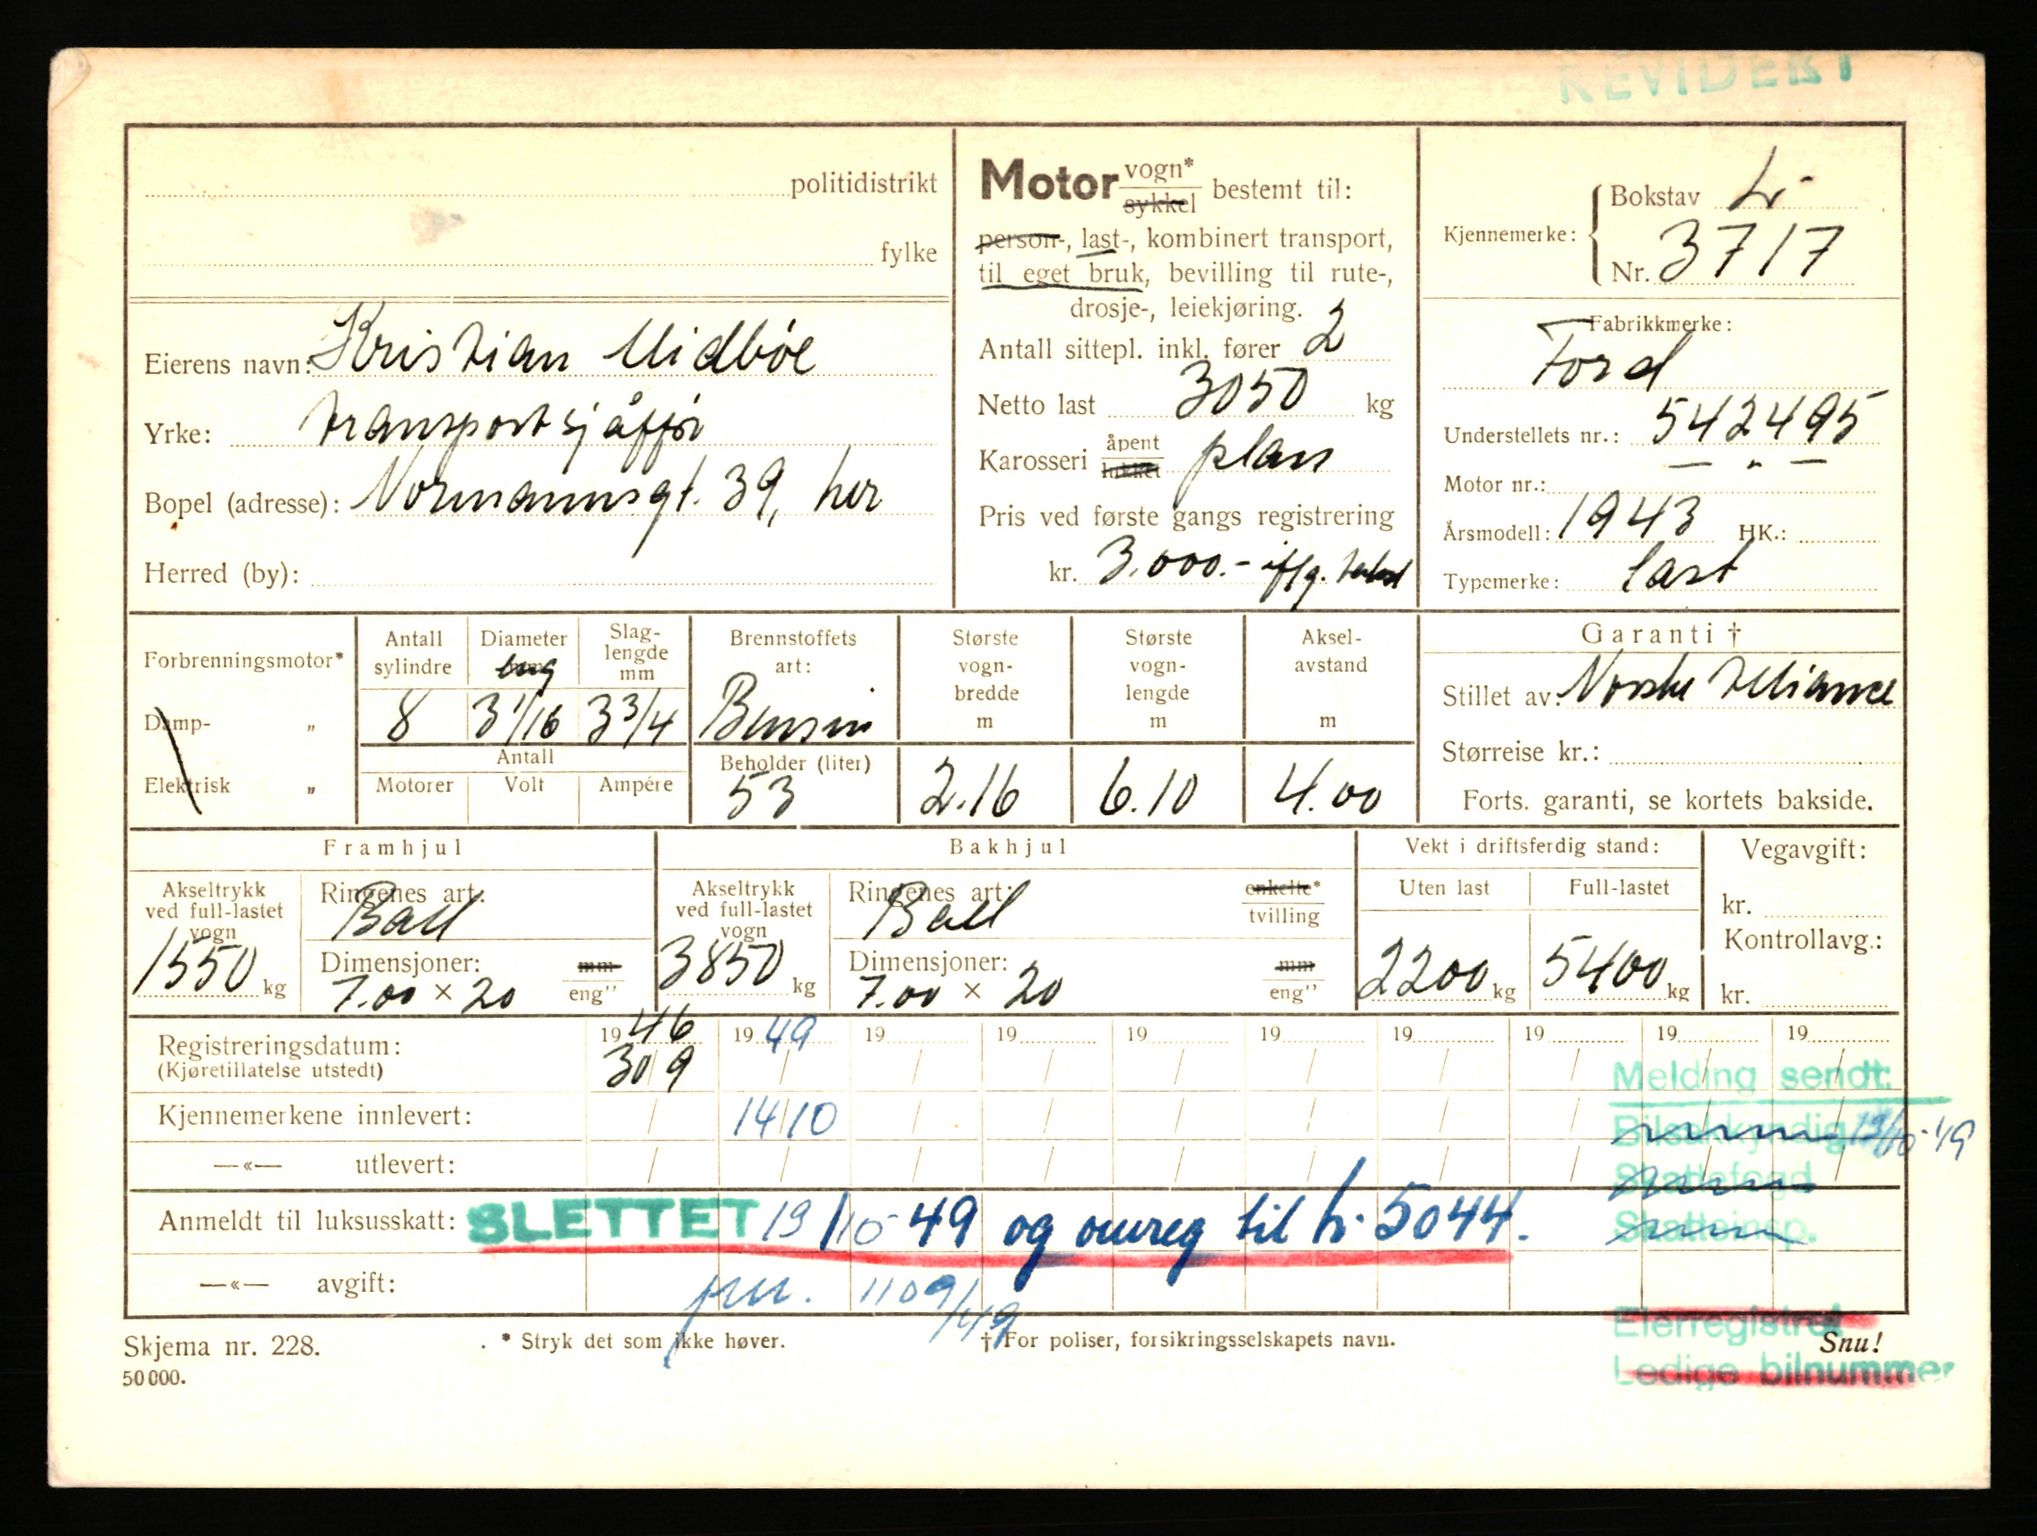 REVIDERT
politidistrikt
fylke
Eierens navn: Kristian Midbøe
Yrke: transportsjåfför
Bopel (adresse): Normannsgt. 39, her
Herred (by):
Motor vogn* sykkel bestemt til:
person-, last-, kombinert transport,
til eget bruk, bevilling til rute-,
drosje-, leiekjøring.
Antall sittepl. inkl. fører 2
Netto last 3050 kg
Karosseri åpent lukket plan
Pris ved første gangs registrering
kr. 3.000.- iflg. takst
Kjennemerke: Bokstav L-
Nr. 3717
Fabrikkmerke:
Ford
Understellets nr.: 542495
Motor nr.: — " —
Årsmodell: 1943 HK.:
Typemerke: last
Forbrenningsmotor*
Damp- „
Elektrisk „
Antall sylindre
8
Diameter eng
3 1/16
Slag-lengde mm
3 3/4
Antall
Motorer Volt Ampére
Brennstoffets art:
Bensin
Beholder (liter)
53
Største vogn-bredde m
2.16
Største vogn-lengde m
6.10
Aksel-avstand m
4.00
Garanti †
Stillet av: Norske Alliance
Størreise kr.:
Forts. garanti, se kortets bakside.
Framhjul
Akseltrykk ved full-lastet vogn
1550 kg
Ringenes art:
Ball
Dimensjoner: mm eng"
7.00 × 20
Bakhjul
Akseltrykk ved full-lastet vogn
3850 kg
Ringenes art: enkelte* tvilling
Ball
Dimensjoner: mm eng"
7.00 × 20
Vekt i driftsferdig stand:
Uten last Full-lastet
2200 kg 5400 kg
Vegavgift:
kr.
Kontrollavg.:
kr.
Registreringsdatum: 1946 1949 19 19 19 19 19 19 19 19
(Kjøretillatelse utstedt) 30/9
Kjennemerkene innlevert: 14/10
—«— utlevert:
Anmeldt til luksusskatt: SLETTET 19/10-49 og omreg til L-5044.
—«— avgift: 1109/49
Melding sendt:
Bilsakkyndig 19/10-49
Skattefogd
Skatteinsp.
Eierregistret
Ledige bilnummer
Skjema nr. 228.
* Stryk det som ikke høver.
† For poliser, forsikringsselskapets navn.
Snu!
50 000.